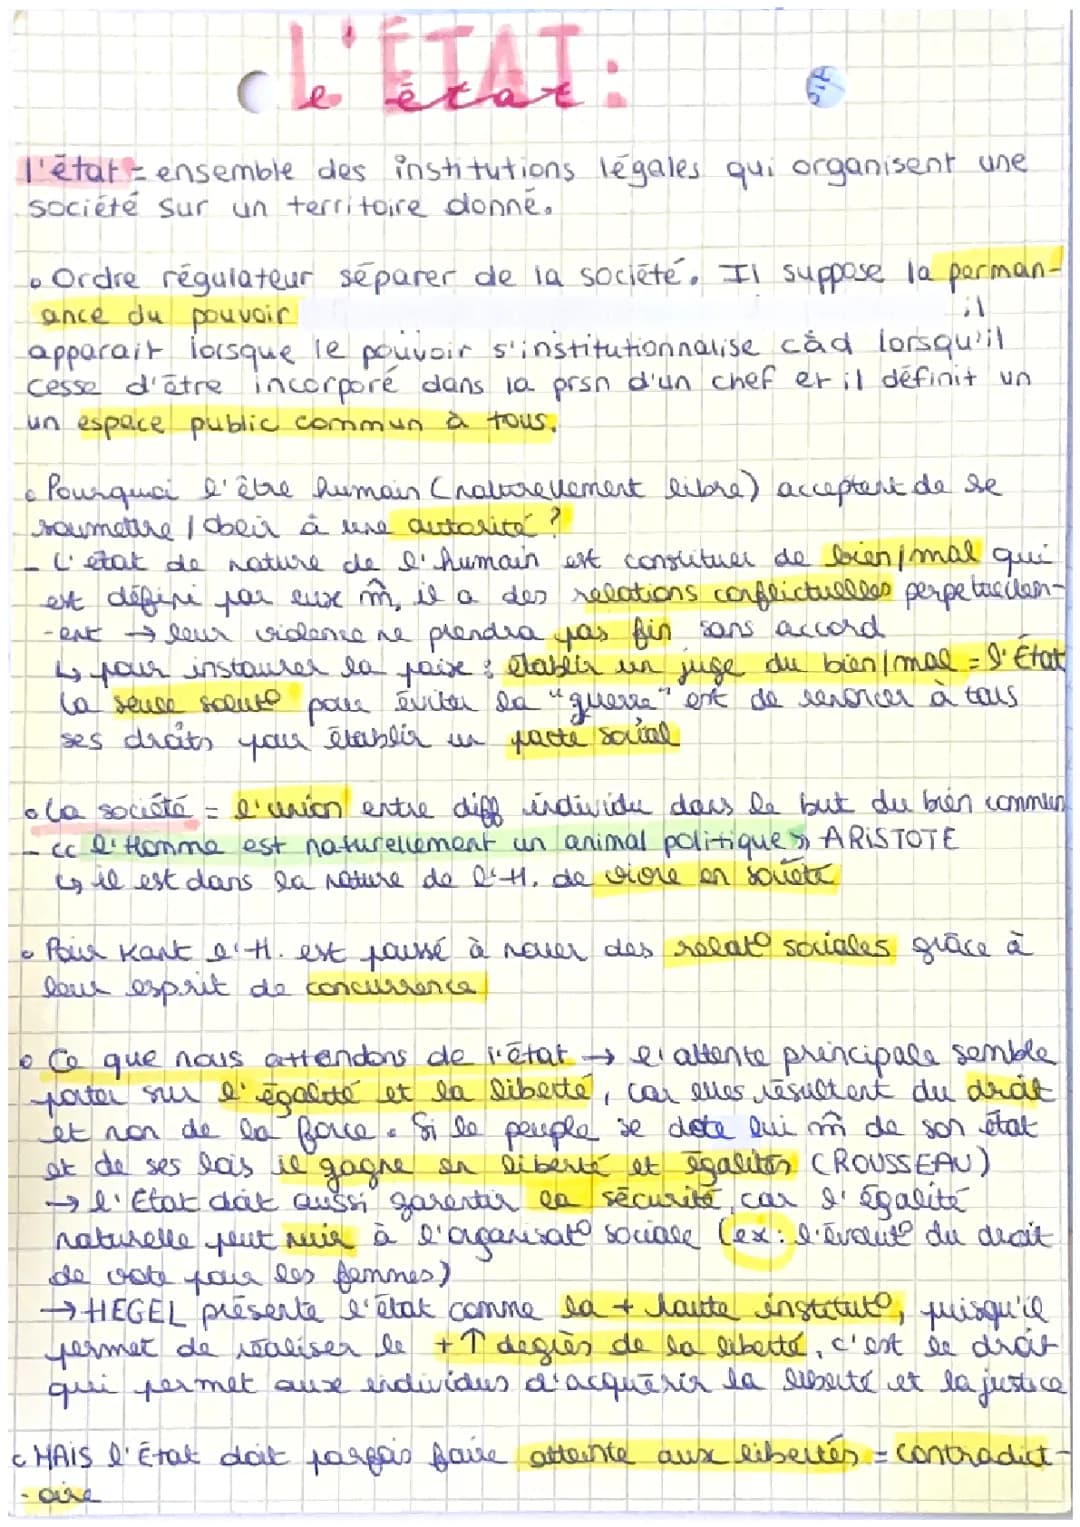 L'ÉTAT:
le état
l'état = ensemble des institutions légales qui organisent une
société sur un territoire donné.
• Ordre régulateur séparer de la société. Il suppose la perman-
ance du pouvoir ; il
apparait lorsque le pouvoir s'institutionnalise càd lorsqu'il
cesse d'être incorporé dans la prsn d'un chef et il définit un
un espace public commun à tous.
• Pourquoi l'être humain (naturellement libre) acceptent de se
soumettre / obeir à une autorité ?
- L'état de nature de l'humain est constituer de bien/mal qui
est défini par eux m̂, il a des relations conflictuelles perpetuellem-
-ent → leur violence ne prendra pas fin sans accord
↳ pour instaurer la paix : établir un juge du bien/mal = l'État
La seule solut° pour éviter la "guerre" est de renoncer à tous
ses droits pour établir un pacte social
• La société = l'union entre diff individu dans le but du bien commun
- « l'Homme est naturellement un animal politique » ARISTOTE
↳ il est dans la nature de l'H. de vivre en société
• Pour Kant l'H. est poussé à nouer des relat° sociales grâce à
leur esprit de concurrence
• Ce que nous attendons de l'état → l'attente principale semble
porter sur l'égalité et la liberté, car elles résultent du droit
et non de la force. Si le peuple se dote lui m̂ de son état
et de ses lois il gagne en liberté et égalités (ROUSSEAU)
→ l'État doit aussi garentir la sécurité, car l'égalité
naturelle peut nuir à l'organisat° sociale (ex: l'évolut° du droit
de vote pour les femmes)
→ HEGEL présente l'état comme la + haute institut°, puisqu'il
permet de réaliser le + ↑ degrès de la liberté, c'est le droit
qui permet aux individus d'acquérir la liberté et la justice
• MAIS l'État doit parfois faire atteinte aux libertés = contradict-
-oire